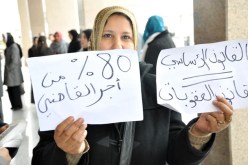 القانون الأساسي
=
قانون العقوبات
80% من
أجر القاضي